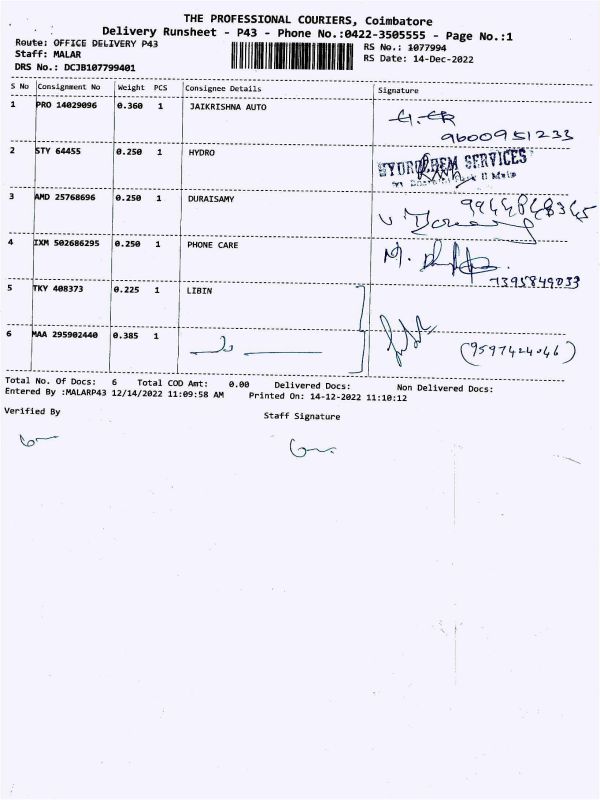 THE PROFESSIONAL COURIERS, Coimbatore
Delivery Runsheet - P43 - Phone No.:0422-3505555 - Page No.:1
Route: OFFICE DELIVERY P43
RS No.: 1077994
Staff: MALAR
RS Date: 14-Dec-2022
DRS No.: DCJB107799401
S No Consignment No Weight PCS Consignee Details Signature
1 PRO 14029096 0.360 1 JAIKRISHNA AUTO
9600951233
2 STY 64455 0.250 1 HYDRO
HYDROCHEM SERVICES
3 AMD 25768696 0.250 1 DURAISAMY
9944848345
4 IXM 502686295 0.250 1 PHONE CARE
7395849033
5 TKY 408373 0.225 1 LIBIN
6 MAA 295902440 0.385 1
(9597424046)
Total No. Of Docs: 6 Total COD Amt: 0.00 Delivered Docs: Non Delivered Docs:
Entered By :MALARP43 12/14/2022 11:09:58 AM Printed On: 14-12-2022 11:10:12
Verified By Staff Signature